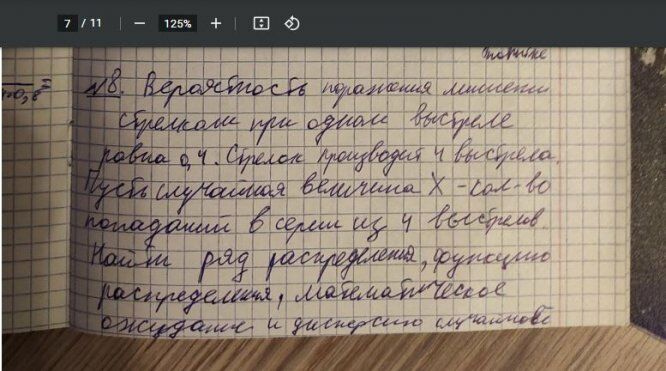 7 / 11 — 125% +
попытке
№8. Вероятность поражения мишени
стрелком при одном выстреле
равна 0,4. Стрелок производит 4 выстрела.
Пусть случайная величина X - кол-во
попаданий в серии из 4 выстрелов.
Найти ряд распределения, функцию
распределения, математическое
ожидание и дисперсию случайной